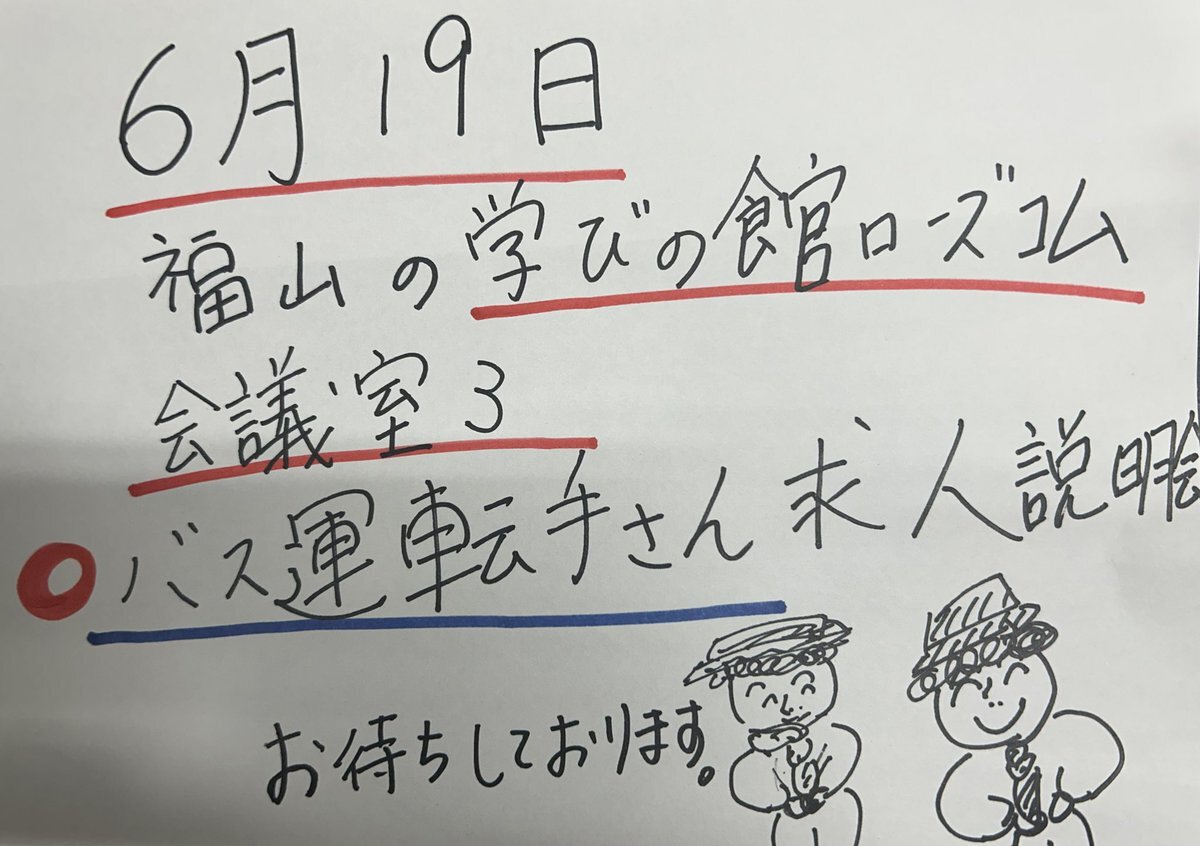 6月19日
福山の学びの館ローズコム
会議室3
バス運転手さん求人説明会
お待ちしております。